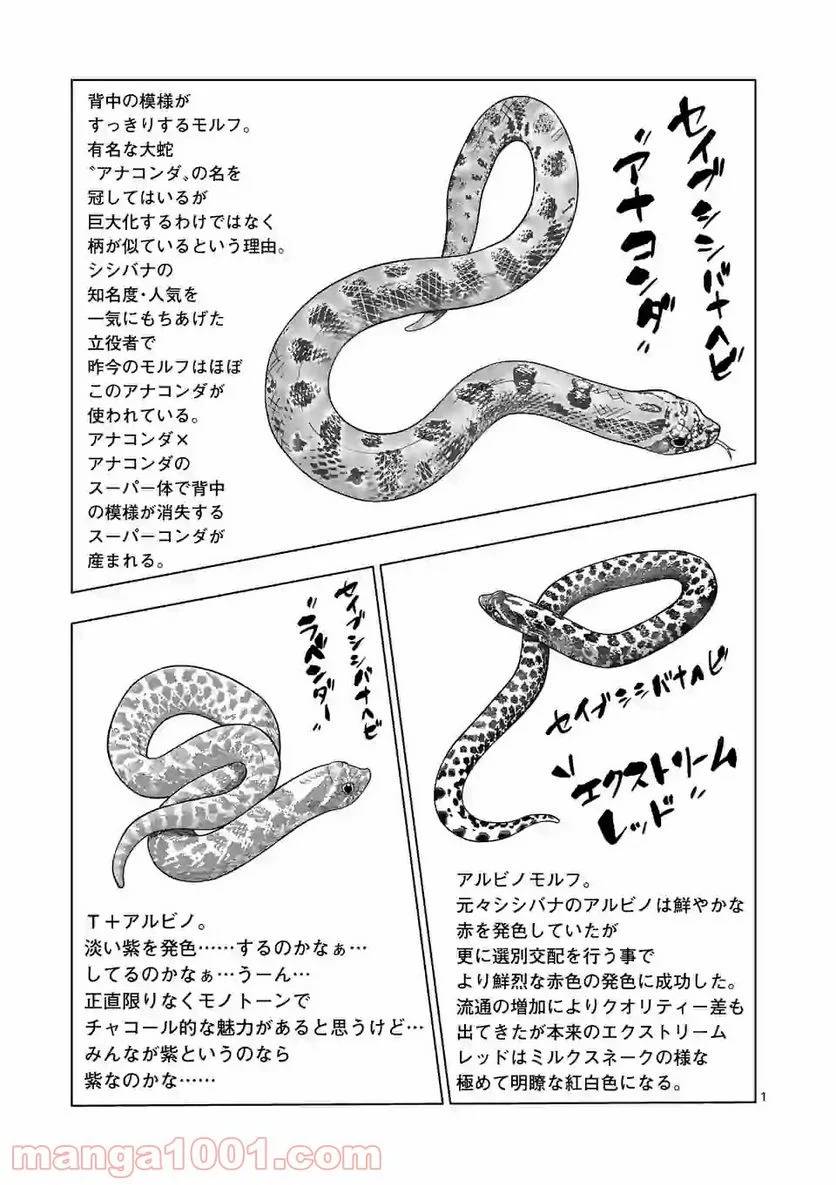 セイブシシバナヘビ
"アナコンダ"
背中の模様が
すっきりするモルフ。
有名な大蛇
〝アナコンダ〟の名を
冠してはいるが
巨大化するわけではなく
柄が似ているという理由。
シシバナの
知名度・人気を
一気にもちあげた
立役者で
昨今のモルフはほぼ
このアナコンダが
使われている。
アナコンダ×
アナコンダの
スーパー体で背中
の模様が消失する
スーパーコンダが
産まれる。
セイブシシバナヘビ
エクストリーム
レッド"
アルビノモルフ。
元々シシバナのアルビノは鮮やかな
赤を発色していたが
更に選別交配を行う事で
より鮮烈な赤色の発色に成功した。
流通の増加によりクオリティー差も
出てきたが本来のエクストリーム
レッドはミルクスネークの様な
極めて明瞭な紅白色になる。
セイブシシバナヘビ
"ラベンダー"
T＋アルビノ。
淡い紫を発色……するのかなぁ…
してるのかなぁ…うーん…
正直限りなくモノトーンで
チャコール的な魅力があると思うけど…
みんなが紫というのなら
紫なのかな……
1
manga1001.com